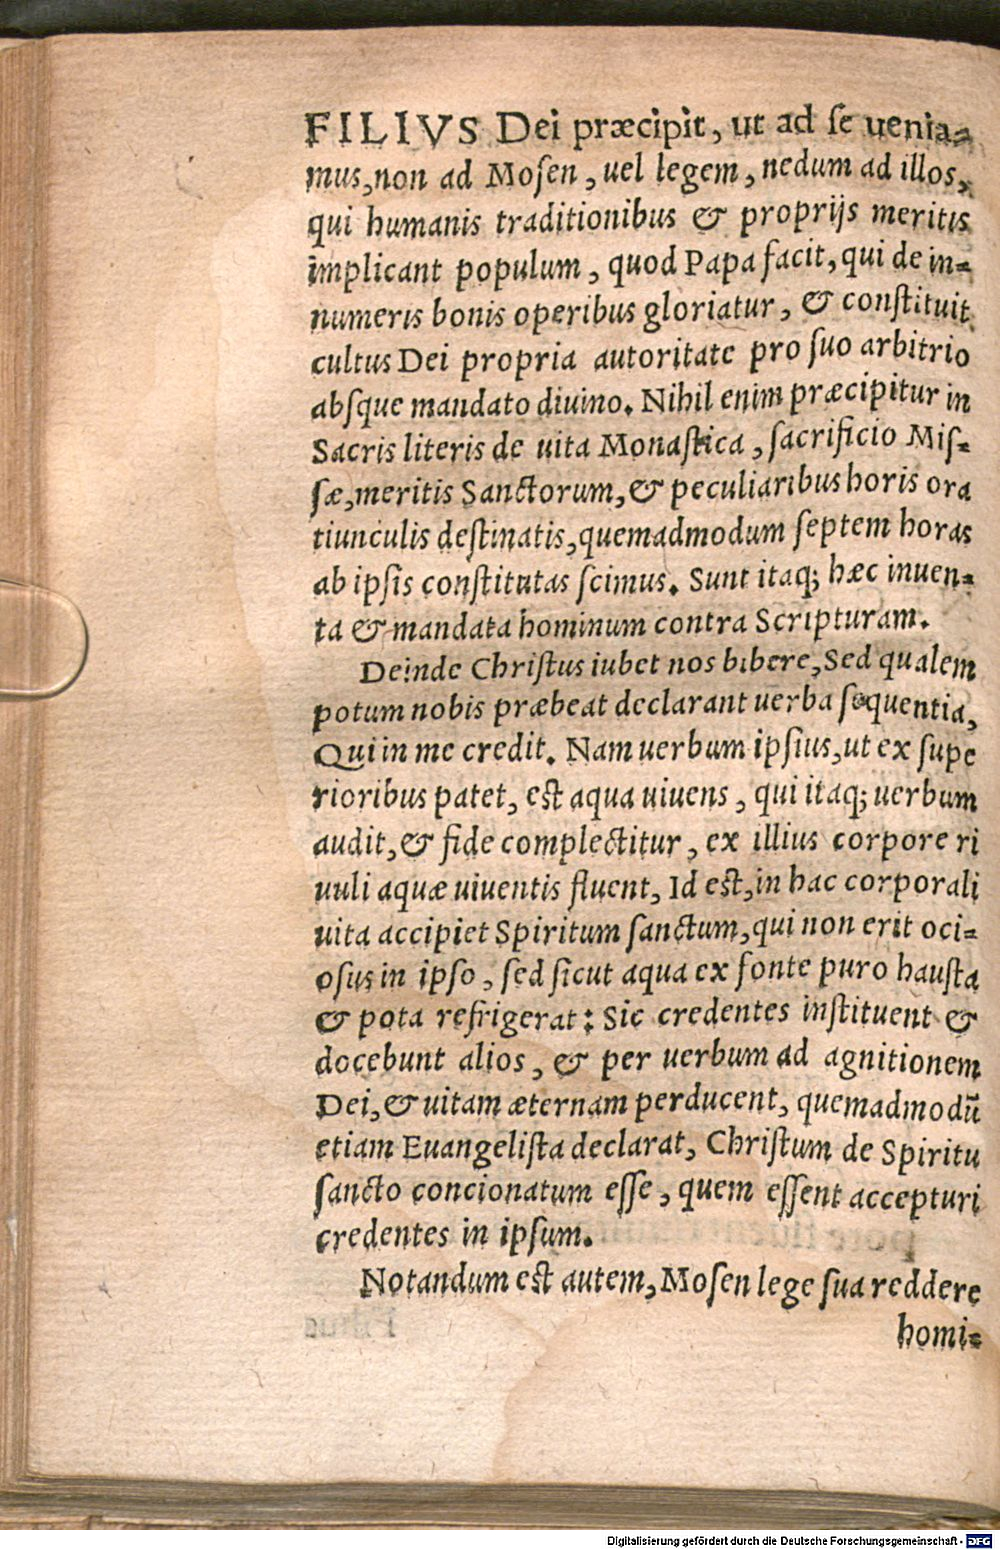 FILIVS Dei præcipit, ut ad se uenia-
mus, non ad Mosen, uel legem, nedum ad illos,
qui humanis traditionibus & proprijs meritis
implicant populum, quod Papa facit, qui de in-
numeris bonis operibus gloriatur, & constituit
cultus Dei propria autoritate pro suo arbitrio
absque mandato diuino. Nihil enim præcipitur in
Sacris literis de uita Monastica, sacrificio Mis-
sæ, meritis Sanctorum, & peculiaribus horis ora
tiunculis destinatis, quemadmodum septem horas
ab ipsis constitutas scimus. Sunt itaq; hæc inuen-
ta & mandata hominum contra Scripturam.
Deinde Christus iubet nos bibere, Sed qualem
potum nobis præbeat declarant uerba sequentia,
Qui in me credit. Nam uerbum ipsius, ut ex supe
rioribus patet, est aqua uiuens, qui itaq; uerbum
audit, & fide complectitur, ex illius corpore ri
uuli aquæ uiuentis fluent, Id est, in hac corporali
uita accipiet Spiritum sanctum, qui non erit oci-
osus in ipso, sed sicut aqua ex fonte puro hausta
& pota refrigerat: Sic credentes instituent &
docebunt alios, & per uerbum ad agnitionem
Dei, & uitam æternam perducent, quemadmodū
etiam Euangelista declarat, Christum de Spiritu
sancto concionatum esse, quem essent accepturi
credentes in ipsum.
Notandum est autem, Mosen lege sua reddere
homi-
Digitalisierung gefördert durch die Deutsche Forschungsgemeinschaft - DFG